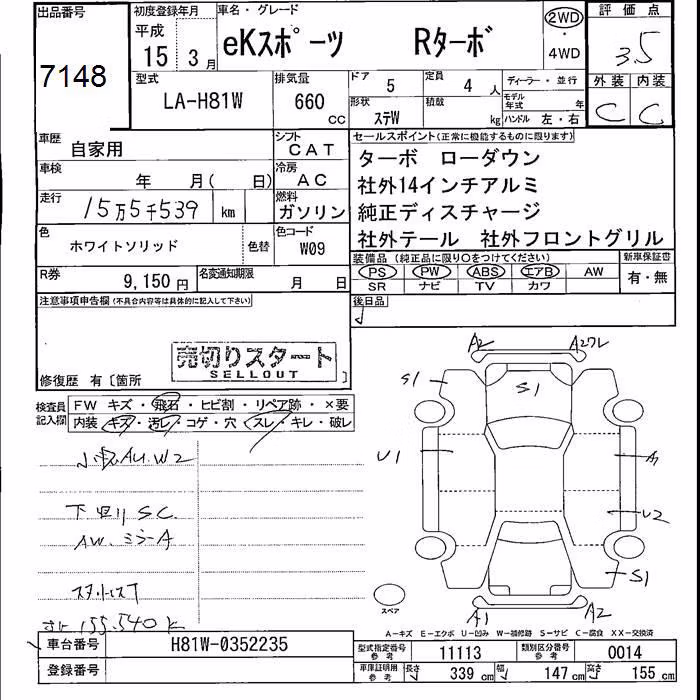 出品番号
7148
初度登録年月
平成
15 3 月
車名・グレード
eKスポーツ Rターボ
2WD
・
4WD
評価点
3.5
外装 内装
C C
型式
LA-H81W
排気量
660 cc
ドア
5
定員
4 人
形状
ステW
積載
kg
ディーラー・並行
モデル年式 年
ハンドル 左・右
車歴
自家用
シフト
CAT
車検
年 月( 日)
冷房
AC
走行
15万5千539 km
燃料
ガソリン
色
ホワイトソリッド
色替
色コード
W09
R券
9,150円
名変通知期限
月 日
セールスポイント(正常に機能するものに限ります)
ターボ ローダウン
社外14インチアルミ
純正ディスチャージ
社外テール 社外フロントグリル
装備品(純正品に限り○をつけてください)
PS PW ABS エアB AW
SR ナビ TV カワ
新車保証書
有・無
後日品
注意事項申告欄(不具合内容等は具体的に記入して下さい)
売切りスタート
SELLOUT
修復歴 有〔箇所 〕
検査員記入欄
FW キズ・飛石・ヒビ割・リペア跡・×要
内装 キズ・汚レ・コゲ・穴・スレ・キレ・破レ
AU.W2
下回りSC.
AW.ミラーA
155.540k
A2 A2ワレ
S1 S1
U1 A
U2
S1
A1 A2
スペア
A-キズ E-エクボ U-凹み W-補修跡 S-サビ C-腐食 XX-交換済
車台番号
H81W-0352235
登録番号
型式指定番号 参考
11113
類別区分番号 参考
0014
車庫証明用 参考
長さ 339 cm 幅 147 cm 高さ 155 cm